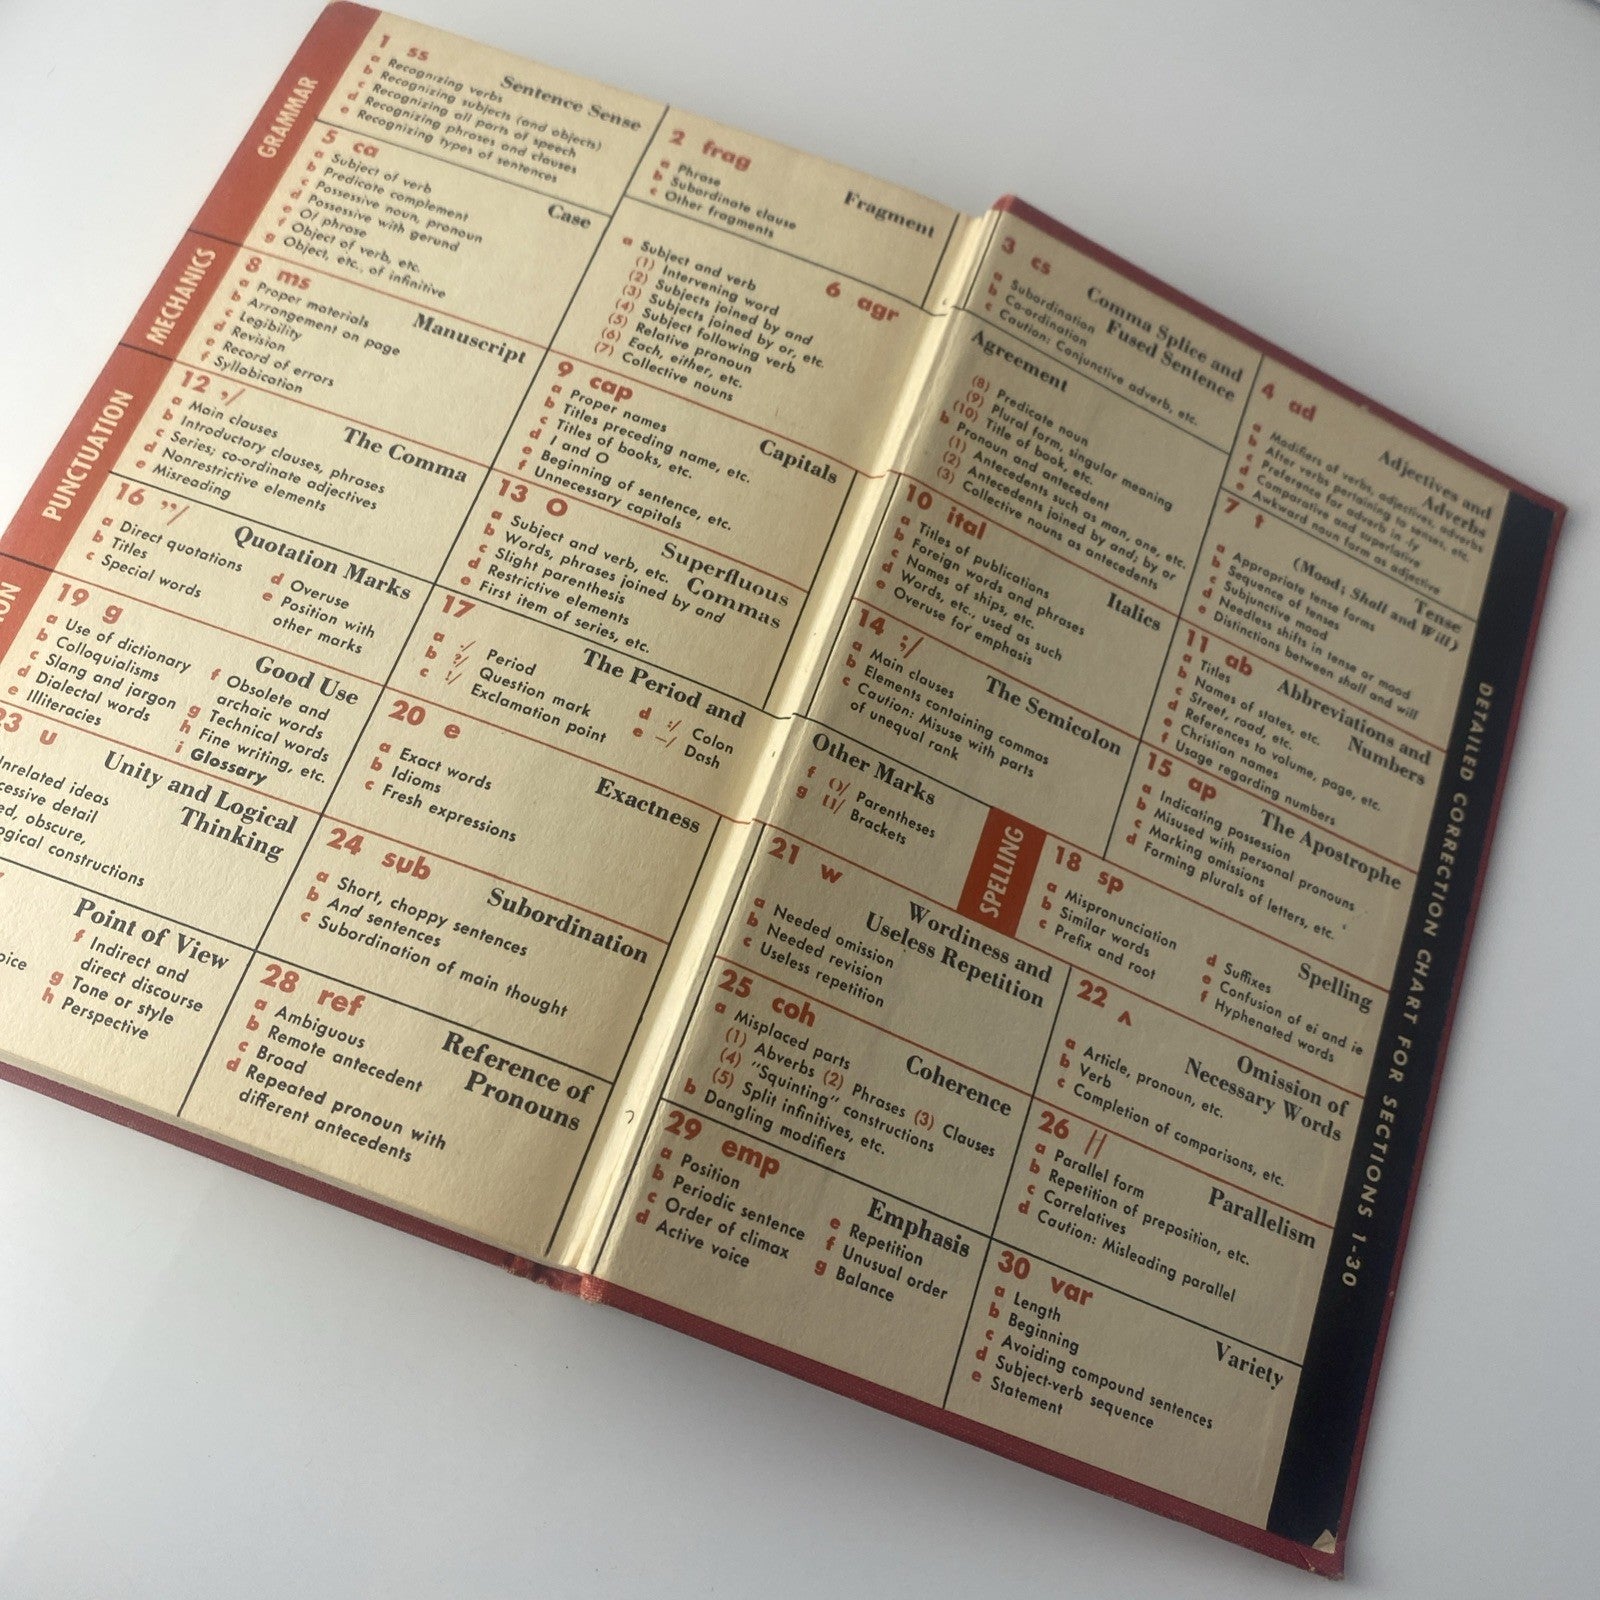 GRAMMAR
1 ss
Sentence Sense
a Recognizing verbs
b Recognizing subjects (and objects)
c Recognizing all parts of speech
d Recognizing phrases and clauses
e Recognizing types of sentences
2 frag
Fragment
a Phrase
b Subordinate clause
c Other fragments
3 cs
Comma Splice and
Fused Sentence
a Subordination
b Co-ordination
c Caution: Conjunctive adverb, etc.
4 ad
Adjectives and
Adverbs
a Modifiers of verbs, adjectives, adverbs
b After verbs pertaining to senses, etc.
c Preference for adverb in -ly
d Comparative and superlative
e Awkward noun form as adjective
5 ca
Case
a Subject of verb
b Predicate complement
c Possessive noun, pronoun
d Possessive with gerund
e Of phrase
f Object of verb, etc.
g Object, etc., of infinitive
6 agr
Agreement
a Subject and verb
(1) Intervening word
(2) Subjects joined by and
(3) Subjects joined by or, etc.
(4) Subject following verb
(5) Relative pronoun
(6) Each, either, etc.
(7) Collective nouns
(8) Predicate noun
(9) Plural form, singular meaning
(10) Title of book, etc.
b Pronoun and antecedent
(1) Antecedents such as man, one, etc.
(2) Antecedents joined by and; by or
(3) Collective nouns as antecedents
7 t
Tense
(Mood; Shall and Will)
a Appropriate tense forms
b Sequence of tenses
c Subjunctive mood
d Needless shifts in tense or mood
e Distinctions between shall and will
MECHANICS
8 ms
Manuscript
a Proper materials
b Arrangement on page
c Legibility
d Revision
e Record of errors
f Syllabication
9 cap
Capitals
a Proper names
b Titles preceding name, etc.
c Titles of books, etc.
d I and O
e Beginning of sentence, etc.
f Unnecessary capitals
10 ital
Italics
a Titles of publications
b Foreign words and phrases
c Names of ships, etc.
d Words, etc., used as such
e Overuse for emphasis
11 ab
Abbreviations and
Numbers
a Titles
b Names of states, etc.
c Street, road, etc.
d References to volume, page, etc.
e Christian names
f Usage regarding numbers
PUNCTUATION
12 ,/
The Comma
a Main clauses
b Introductory clauses, phrases
c Series; co-ordinate adjectives
d Nonrestrictive elements
e Misreading
13 O
Superfluous
Commas
a Subject and verb, etc.
b Words, phrases joined by and
c Slight parenthesis
d Restrictive elements
e First item of series, etc.
14 ;/
The Semicolon
a Main clauses
b Elements containing commas
c Caution: Misuse with parts
of unequal rank
15 ap
The Apostrophe
a Indicating possession
b Misused with personal pronouns
c Marking omissions
d Forming plurals of letters, etc.
16 ”/
Quotation Marks
a Direct quotations
b Titles
c Special words
d Overuse
e Position with
other marks
17
The Period and
Other Marks
a ./ Period
b ?/ Question mark
c !/ Exclamation point
d :/ Colon
e —/ Dash
f ()/ Parentheses
g []/ Brackets
SPELLING
18 sp
Spelling
a Mispronunciation
b Similar words
c Prefix and root
d Suffixes
e Confusion of ei and ie
f Hyphenated words
ION
19 g
Good Use
a Use of dictionary
b Colloquialisms
c Slang and jargon
d Dialectal words
e Illiteracies
f Obsolete and
archaic words
g Technical words
h Fine writing, etc.
i Glossary
20 e
Exactness
a Exact words
b Idioms
c Fresh expressions
21 w
Wordiness and
Useless Repetition
a Needed omission
b Needed revision
c Useless repetition
22 ^
Omission of
Necessary Words
a Article, pronoun, etc.
b Verb
c Completion of comparisons, etc.
23 u
Unity and Logical
Thinking
nrelated ideas
cessive detail
ed, obscure,
ogical constructions
24 sub
Subordination
a Short, choppy sentences
b And sentences
c Subordination of main thought
25 coh
Coherence
a Misplaced parts
(1) Abverbs (2) Phrases (3) Clauses
(4) "Squinting" constructions
(5) Split infinitives, etc.
b Dangling modifiers
26 //
Parallelism
a Parallel form
b Repetition of preposition, etc.
c Correlatives
d Caution: Misleading parallel
Point of View
oice
f Indirect and
direct discourse
g Tone or style
h Perspective
28 ref
Reference of
Pronouns
a Ambiguous
b Remote antecedent
c Broad
d Repeated pronoun with
different antecedents
29 emp
Emphasis
a Position
b Periodic sentence
c Order of climax
d Active voice
e Repetition
f Unusual order
g Balance
30 var
Variety
a Length
b Beginning
c Avoiding compound sentences
d Subject-verb sequence
e Statement
DETAILED CORRECTION CHART FOR SECTIONS 1-30